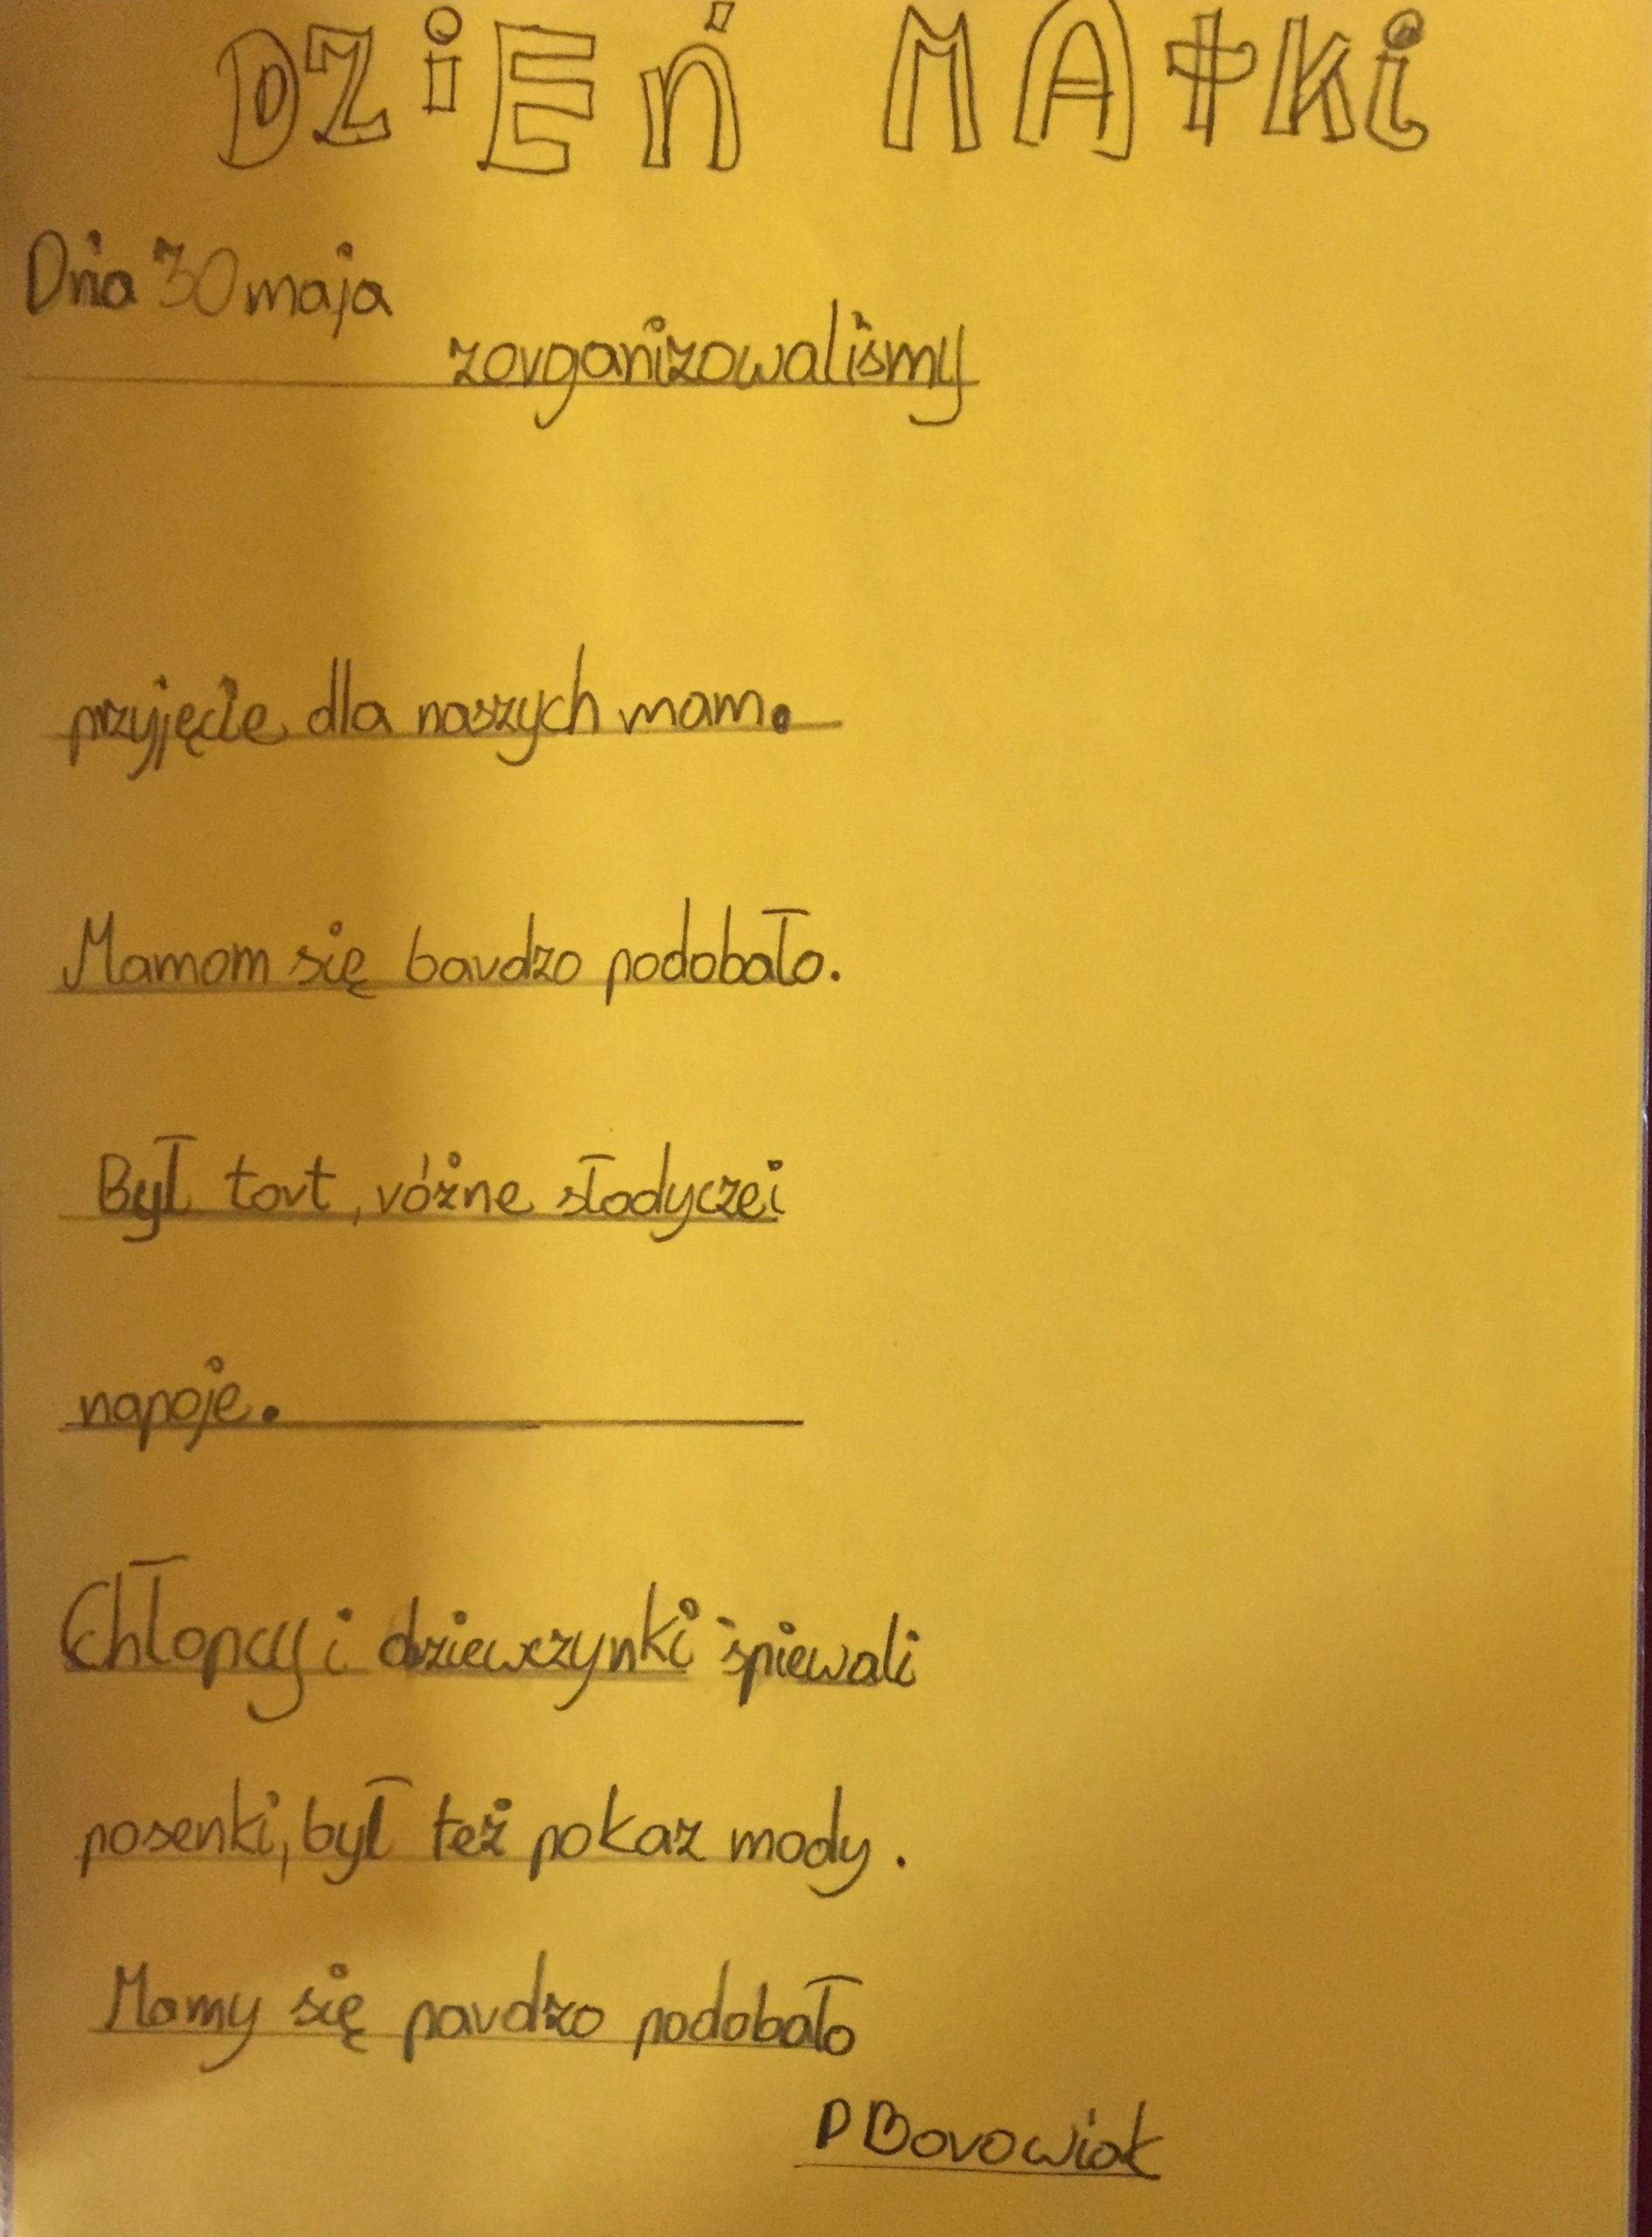 DZiEń MAtki
Dnia 30 maja
zorganizowaliśmy
przyjęcie dla naszych mam.
Mamom się bardzo podobało.
Był tort, różne słodycze i
napoje.
Chłopcy i dziewczynki śpiewali
posenki, był też pokaz mody.
Mamy się pardzo podobało
P Borowiak